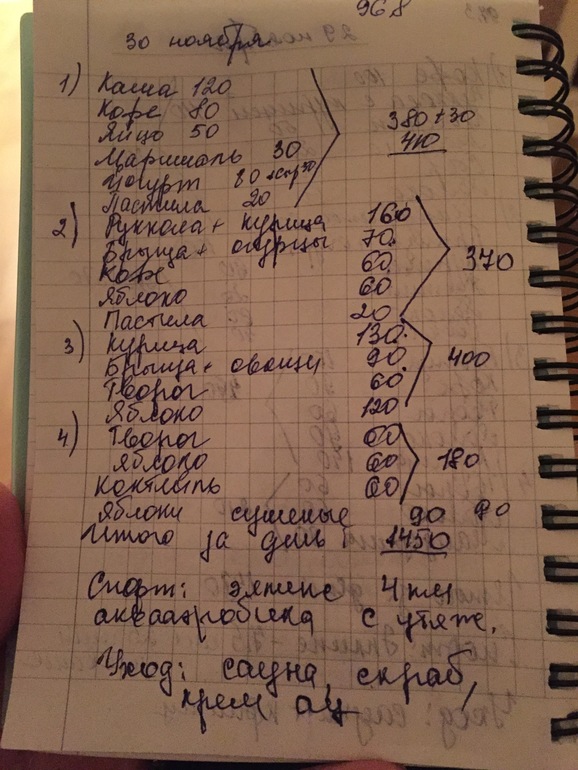 968
30 ноября
1) Каша 120
Кофе 80
Яйцо 50
380+30
410
Маршмаль 30
Йогурт 80 +сыр 30
Пастила 20
2) Руккола + курица 160
Брынза + огурцы 70
Кофе 60
370
Яблоко 60
Пастила 20
3) Курица 130
Брынза + овощи 90
400
Творог 60
Яблоко 120
4) Творог 60
Яблоко 60
180
Коктлыль 60
Яблоки сушеные 90 90
Итого за день 1450
Спорт: элипс 4 км
аквааэробика с утяже.
Уход: сауна, скраб,
крем ац